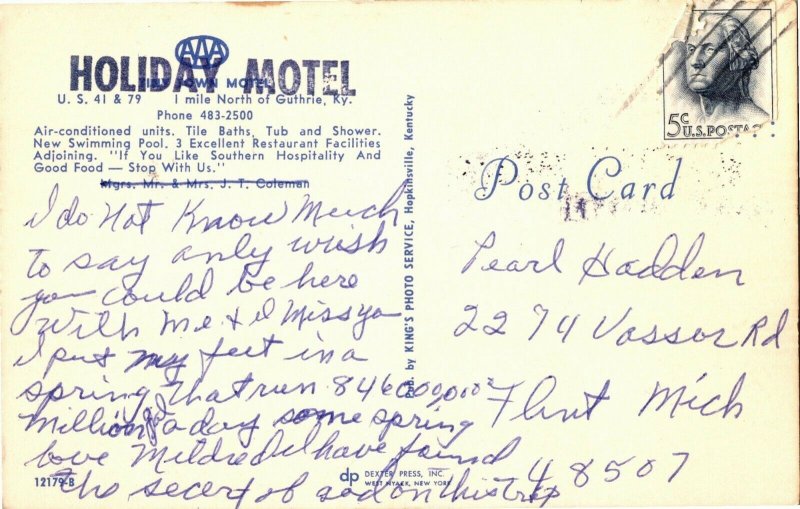 AAA
HOLIDAY MOTEL
TOWN MOTEL
U. S. 41 & 79 1 mile North of Guthrie, Ky.
Phone 483-2500
Air-conditioned units. Tile Baths, Tub and Shower.
New Swimming Pool. 3 Excellent Restaurant Facilities
Adjoining. "If You Like Southern Hospitality And
Good Food — Stop With Us."
Mgrs. Mr. & Mrs. J. T. Coleman
I do Not Know Much
to say only wish
you could be here
With Me & I Miss ya
I put my feet in a
spring that run 846000,000
Million gal a day some spring
love Mildred I have found
the secert of god on this trip
12179-B
Pub. by KING'S PHOTO SERVICE, Hopkinsville, Kentucky
dp DEXTER PRESS, INC.
WEST NYACK, NEW YORK
5c
U.S. POSTA
Post Card
Pearl Hadden
2274 Vassor Rd
Flint Mich
48507